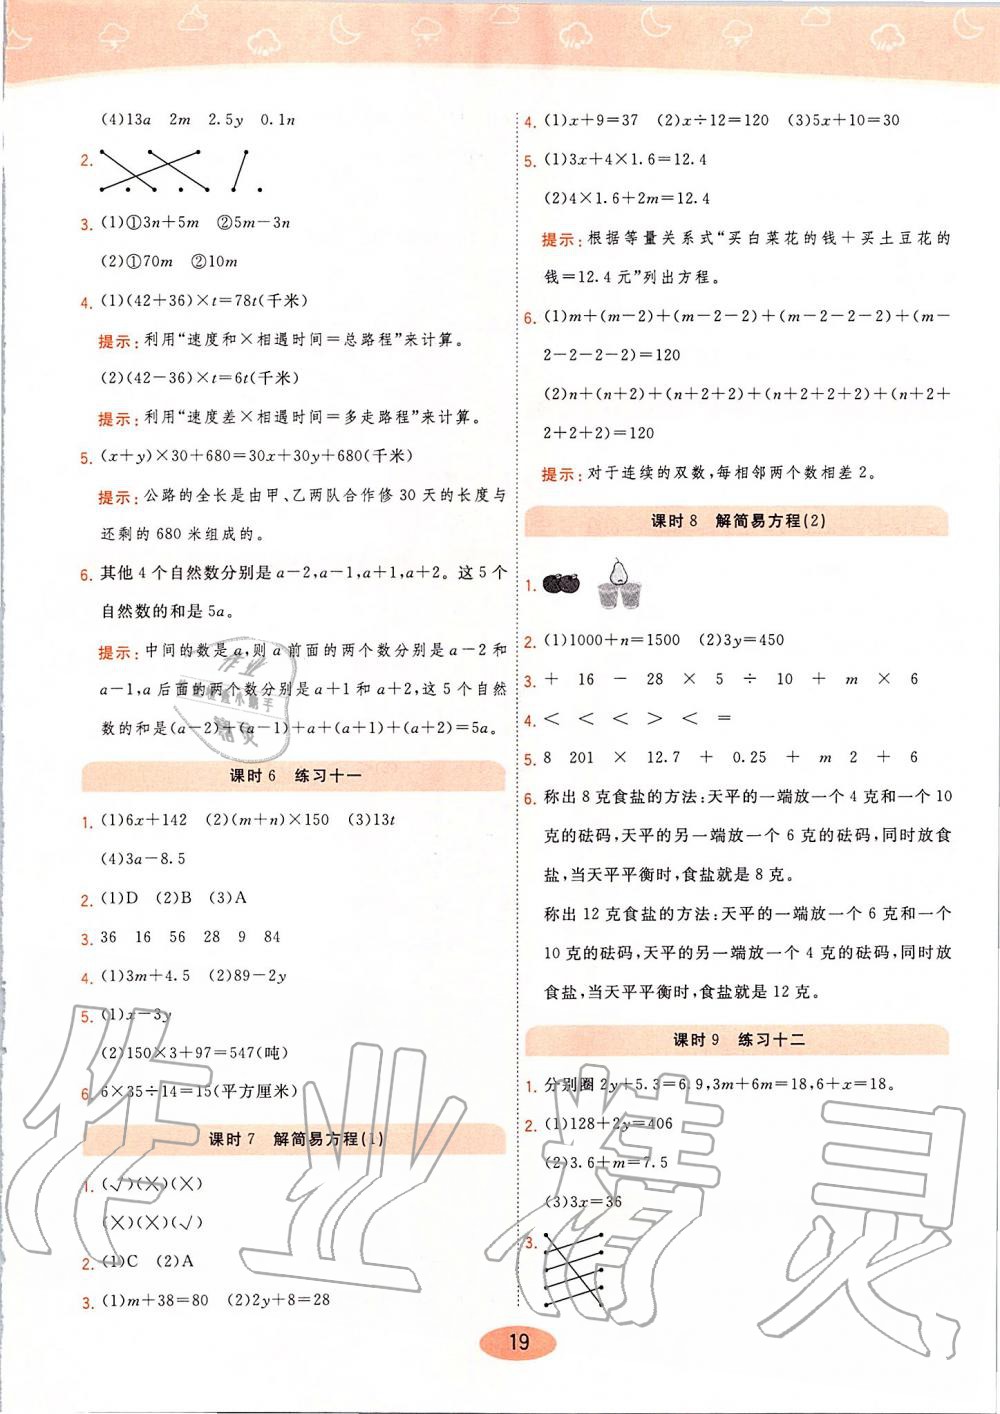 (4)13a　2m　2.5y　0.1n
2.
3. (1)①3n+5m　②5m−3n
(2)①70m　②10m
4. (1)(42+36)×t=78t(千米)
提示:利用“速度和×相遇时间=总路程”来计算。
(2)(42−36)×t=6t(千米)
提示:利用“速度差×相遇时间=多走路程”来计算。
5. (x+y)×30+680=30x+30y+680(千米)
提示:公路的全长是由甲、乙两队合作修 30 天的长度与
还剩的 680 米组成的。
6. 其他 4 个自然数分别是 a−2,a−1,a+1,a+2。这 5 个
自然数的和是 5a。
提示:中间的数是 a,则 a 前面的两个数分别是 a−2 和
a−1,a 后面的两个数分别是 a+1 和 a+2,这 5 个自然
数的和是(a−2)+(a−1)+a+(a+1)+(a+2)=5a。
课时 6　练习十一
1. (1)6x+142　(2)(m+n)×150　(3)13t
(4)3a−8.5
2. (1)D　(2)B　(3)A
3. 36　16　56　28　9　84
4. (1)3m+4.5　(2)89−2y
5. (1)x−3y
(2)150×3+97=547(吨)
6. 6×35÷14=15(平方厘米)
课时 7　解简易方程(1)
1. (√)(×)(×)
(×)(×)(√)
2. (1)C　(2)A
3. (1)m+38=80　(2)2y+8=28
4. (1)x+9=37　(2)x÷12=120　(3)5x+10=30
5. (1)3x+4×1.6=12.4
(2)4×1.6+2m=12.4
提示:根据等量关系式“买白菜花的钱+买土豆花的
钱=12.4 元”列出方程。
6. (1)m+(m−2)+(m−2−2)+(m−2−2−2)+(m−
2−2−2−2)=120
(2)n+(n+2)+(n+2+2)+(n+2+2+2)+(n+2+
2+2+2)=120
提示:对于连续的双数,每相邻两个数相差 2。
课时 8　解简易方程(2)
1.
2. (1)1000+n=1500　(2)3y=450
3. +　16　−　28　×　5　÷　10　+　m　×　6
4. <　<　<　>　<　=
5. 8　201　×　12.7　+　0.25　+　m　2　+　6
6. 称出 8 克食盐的方法:天平的一端放一个 4 克和一个 10
克的砝码,天平的另一端放一个 6 克的砝码,同时放食
盐,当天平平衡时,食盐就是 8 克。
称出 12 克食盐的方法:天平的一端放一个 6 克和一个
10 克的砝码,天平的另一端放一个 4 克的砝码,同时放
食盐,当天平平衡时,食盐就是 12 克。
课时 9　练习十二
1. 分别圈 2y+5.3=6.9,3m+6m=18,6+x=18。
2. (1)128+2y=406
(2)3.6+m=7.5
(3)3x=36
3.
19
作业精灵